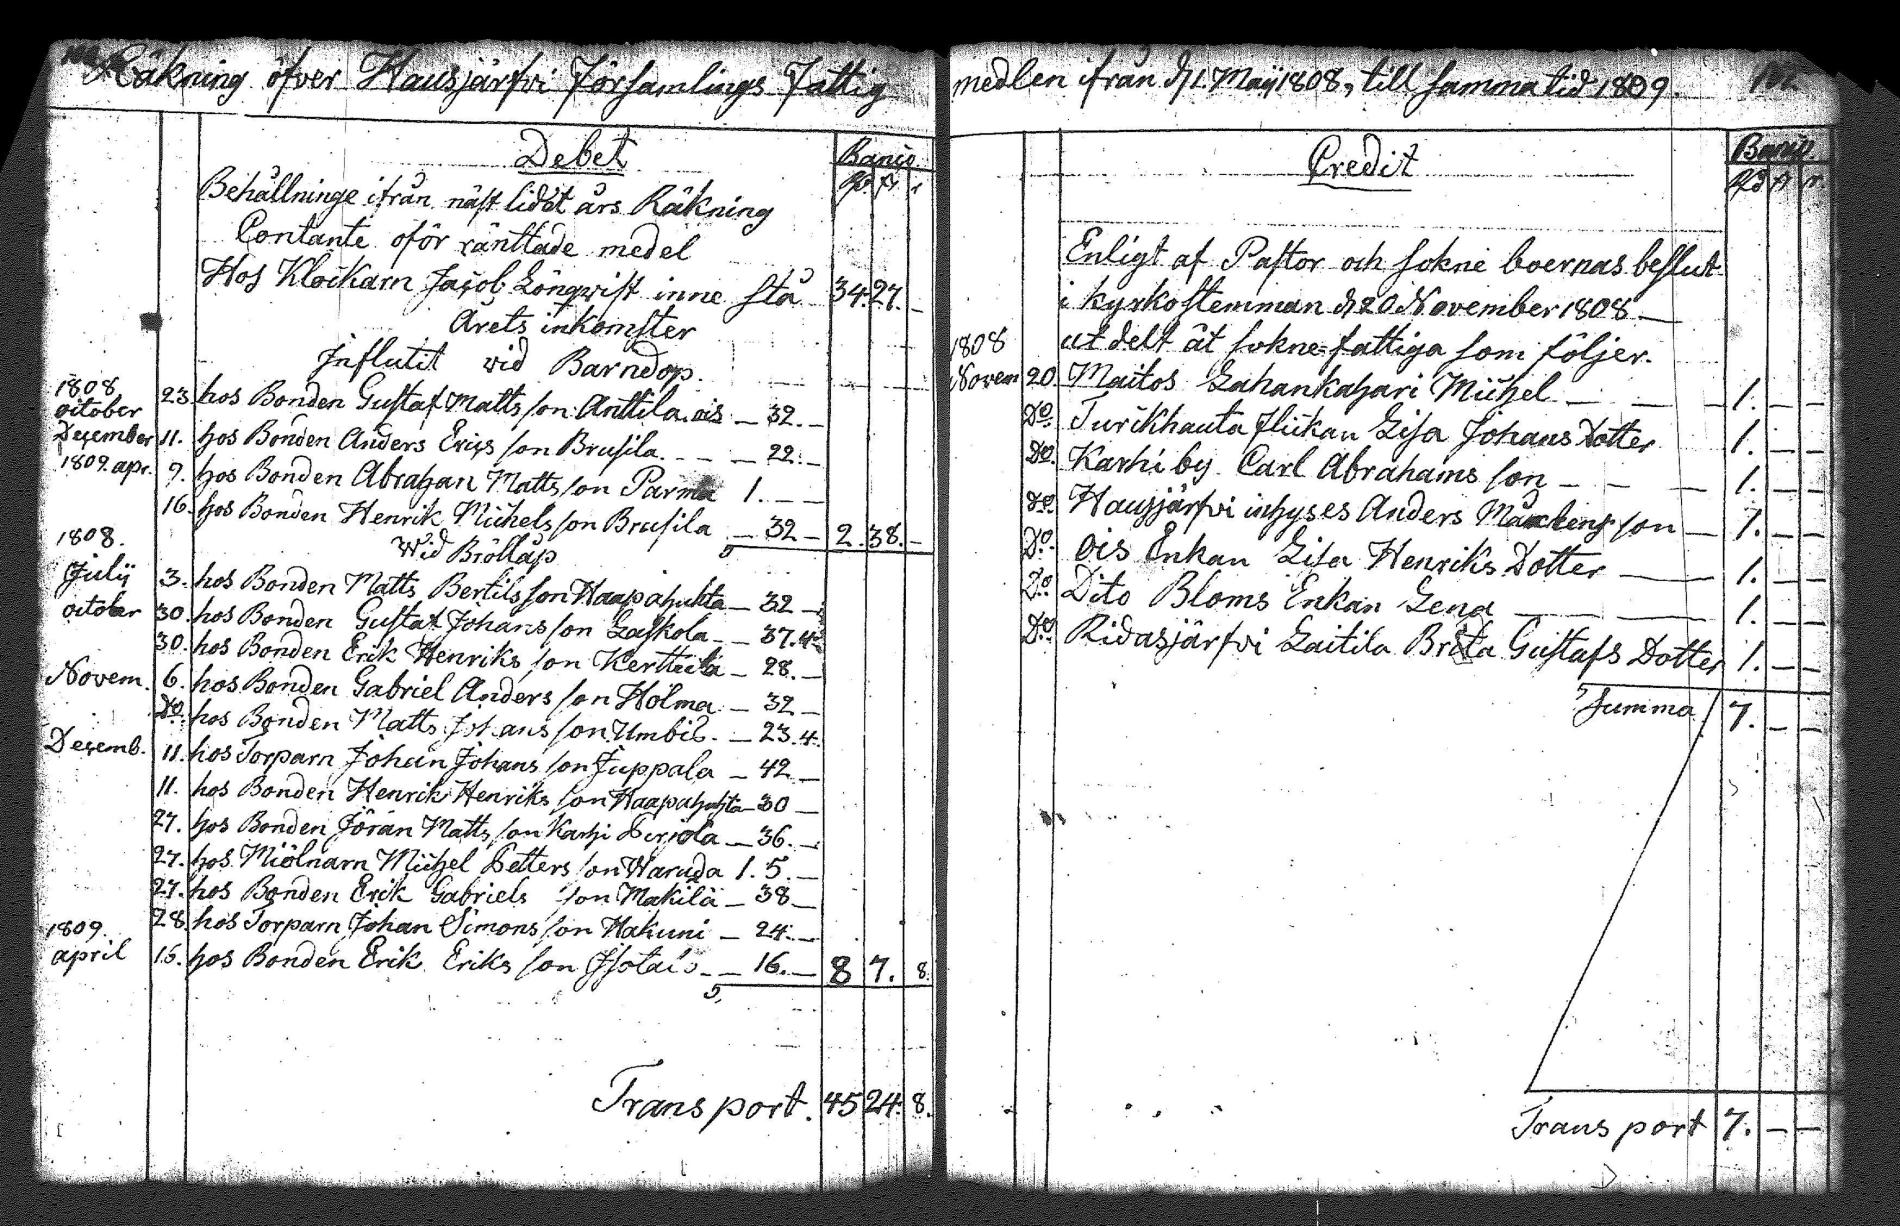 Räkning öfver Hausjärfvi Församlings Fattig
Debet
Banco
Rd ß r
Behållninge ifrån näst lidet års Räkning
Contante oför ränttade medel
Hos Klockarn Jacob Löngwist inne stå 34. 27. –
Årets inkomster
Influtit wid Barndop.
1808
october 23. hos Bonden Gustaf Matts son Anttila ois – 32. –
Desember 11. hos Bonden Anders Erics son Brusila – 22. –
1809 apr. 9. hos Bonden Abraham Matts son Parma 1. – –
16. hos Bonden Henrik Michels son Brusila – 32 – 2. 38. –
1808.
Wid Bröllåp
Julÿ 3. hos Bonden Matts Bertils son Haapahuhta – 32 –
october 30. hos Bonden Gustaf Johans son Laskola – 37. 4.
30. hos Bonden Erik Henriks son Kerttula – 28. –
Novem. 6. hos Bonden Gabriel Anders son Holma – 32 –
Do hos Bonden Matts Johans son Umbis. – 23. 4.
Desemb. 11. hos Torparn Johan Johans son Juppala – 42 –
11. hos Bonden Henrik Henriks son Haapahuhta – 30 –
27. hos Bonden Jöran Matts son Karhi – 36. –
27. hos Miölnarn Michel Petters son Haruda 1. 5. –
27. hos Bonden Erik Gabriels son Makilä – 38 –
28 hos Torparn Johan Simons son Hakuni – 24. –
1809.
april 16. hos Bonden Erik Eriks son – 16. – 8 7. 8.
Transport. 45 24. 8.
medlen ifrån d 1. Maÿ 1808, till samma tid 1809.
Credit
Banco.
Rd ß r.
Enligt af Pastor och sokne boernas beslut
i kyrkostemman d 20 November 1808 –
1808 ut delt åt sokne fattiga som följer.
Novem 20. Maitos Lahankahari Michel – 1. – –
Do. Turckhauta flickan Lisa Johans Dotter 1. – –
Do. Karhi by Carl Abrahams son – 1. – –
Do. Hausjärfvi inhyses Anders son – 1. – –
Do. ois Enkan Lisa Henriks Dotter – 1. – –
Do Dito Bloms Enkan Lena – 1. – –
Do. Ridasjärfvi Laitila Brita Gustafs Dotter 1. – –
Summa 7. – –
Transport 7. – –